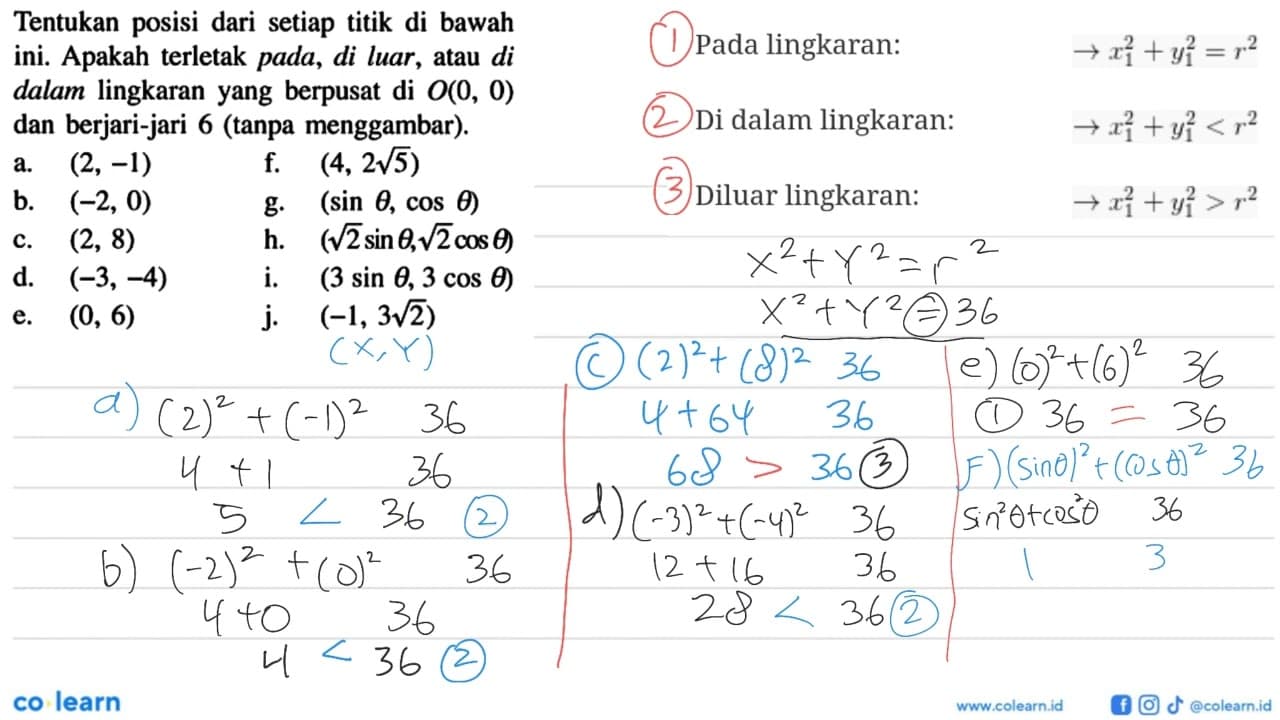 Tentukan posisi dari setiap titik di bawah
ini. Apakah terletak pada, di luar, atau di
dalam lingkaran yang berpusat di O(0, 0)
dan berjari-jari 6 (tanpa menggambar).
a. (2, −1) f. (4, 2√5)
b. (−2, 0) g. (sin θ, cos θ)
c. (2, 8) h. (√2 sin θ, √2 cos θ)
d. (−3, −4) i. (3 sin θ, 3 cos θ)
e. (0, 6) j. (−1, 3√2)
(X, Y)
① Pada lingkaran: → x₁² + y₁² = r²
② Di dalam lingkaran: → x₁² + y₁² < r²
③ Diluar lingkaran: → x₁² + y₁² > r²
X² + Y² = r²
X² + Y² = 36
a) (2)² + (-1)² 36
4 + 1 36
5 < 36 ②
b) (-2)² + (0)² 36
4 + 0 36
4 < 36 ②
Ⓒ (2)² + (8)² 36
4 + 64 36
68 > 36 ③
d) (-3)² + (-4)² 36
12 + 16 36
28 < 36 ②
e) (0)² + (6)² 36
① 36 = 36
F) (sin θ)² + (cos θ)² 36
sin²θ + cos²θ 36
1 3
co learn
www.colearn.id @colearn.id